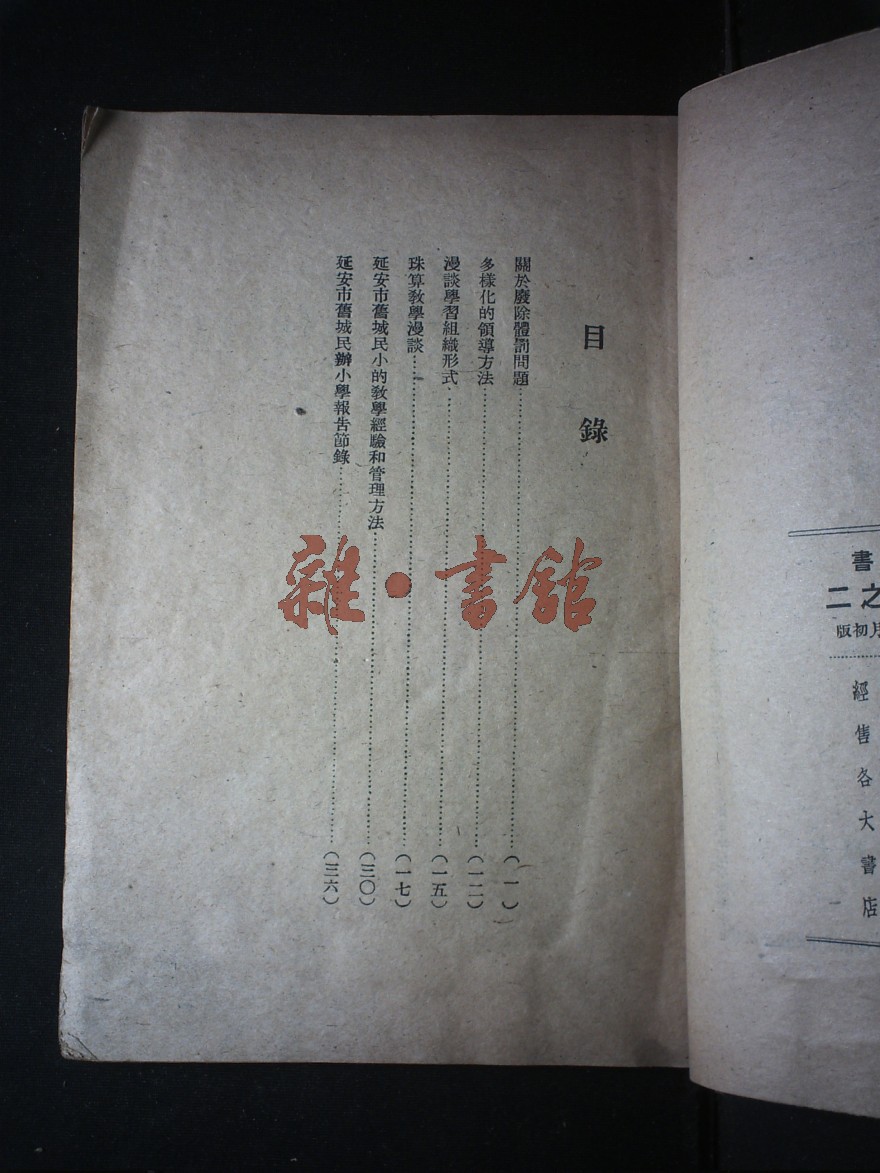 書
二之
版初月
經售各大書店
目錄
關於廢除體罰問題……(一)
多樣化的領導方法……(一二)
漫談學習組織形式……(一五)
珠算教學漫談……(一七)
延安市舊城民小的教學經驗和管理方法……(三〇)
延安市舊城民辦小學報告節錄……(三六)
雜·書館